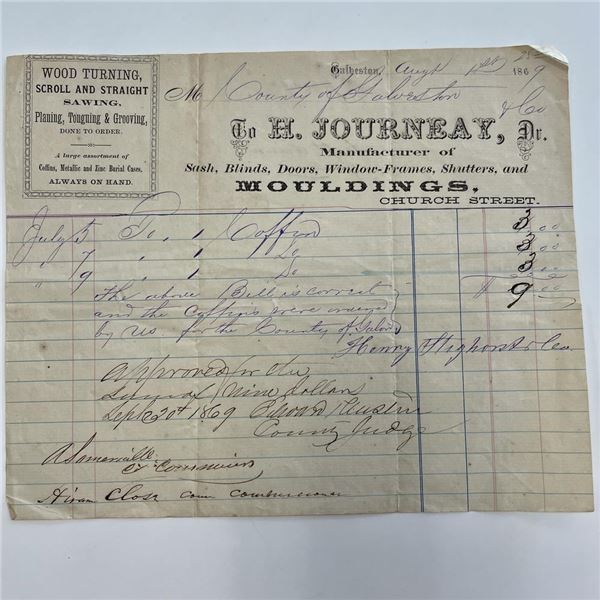 WOOD TURNING,
SCROLL AND STRAIGHT
SAWING,
Planing, Tonguing & Grooving,
DONE TO ORDER.
A large assortment of
Coffins, Metallic and Zinc Burial Cases,
ALWAYS ON HAND.
Galveston, Augt 1869
M County of Galveston
To H. JOURNEAY, & Co Dr.
Manufacturer of
Sash, Blinds, Doors, Window-Frames, Shutters, and
MOULDINGS,
CHURCH STREET.
July 5 To 1 Coffin 3.00
" 7 " 1 Do 3.00
" 9 " 1 Do 3.00
The above Bill is correct $ 9.00
and the Coffins were ordered
by us for the County of Galv
Henry & Co
Approved for the
nine dollars
Sept 20th 1869 Edward
County Judge
A Somerville
Co
Hiram Close Com